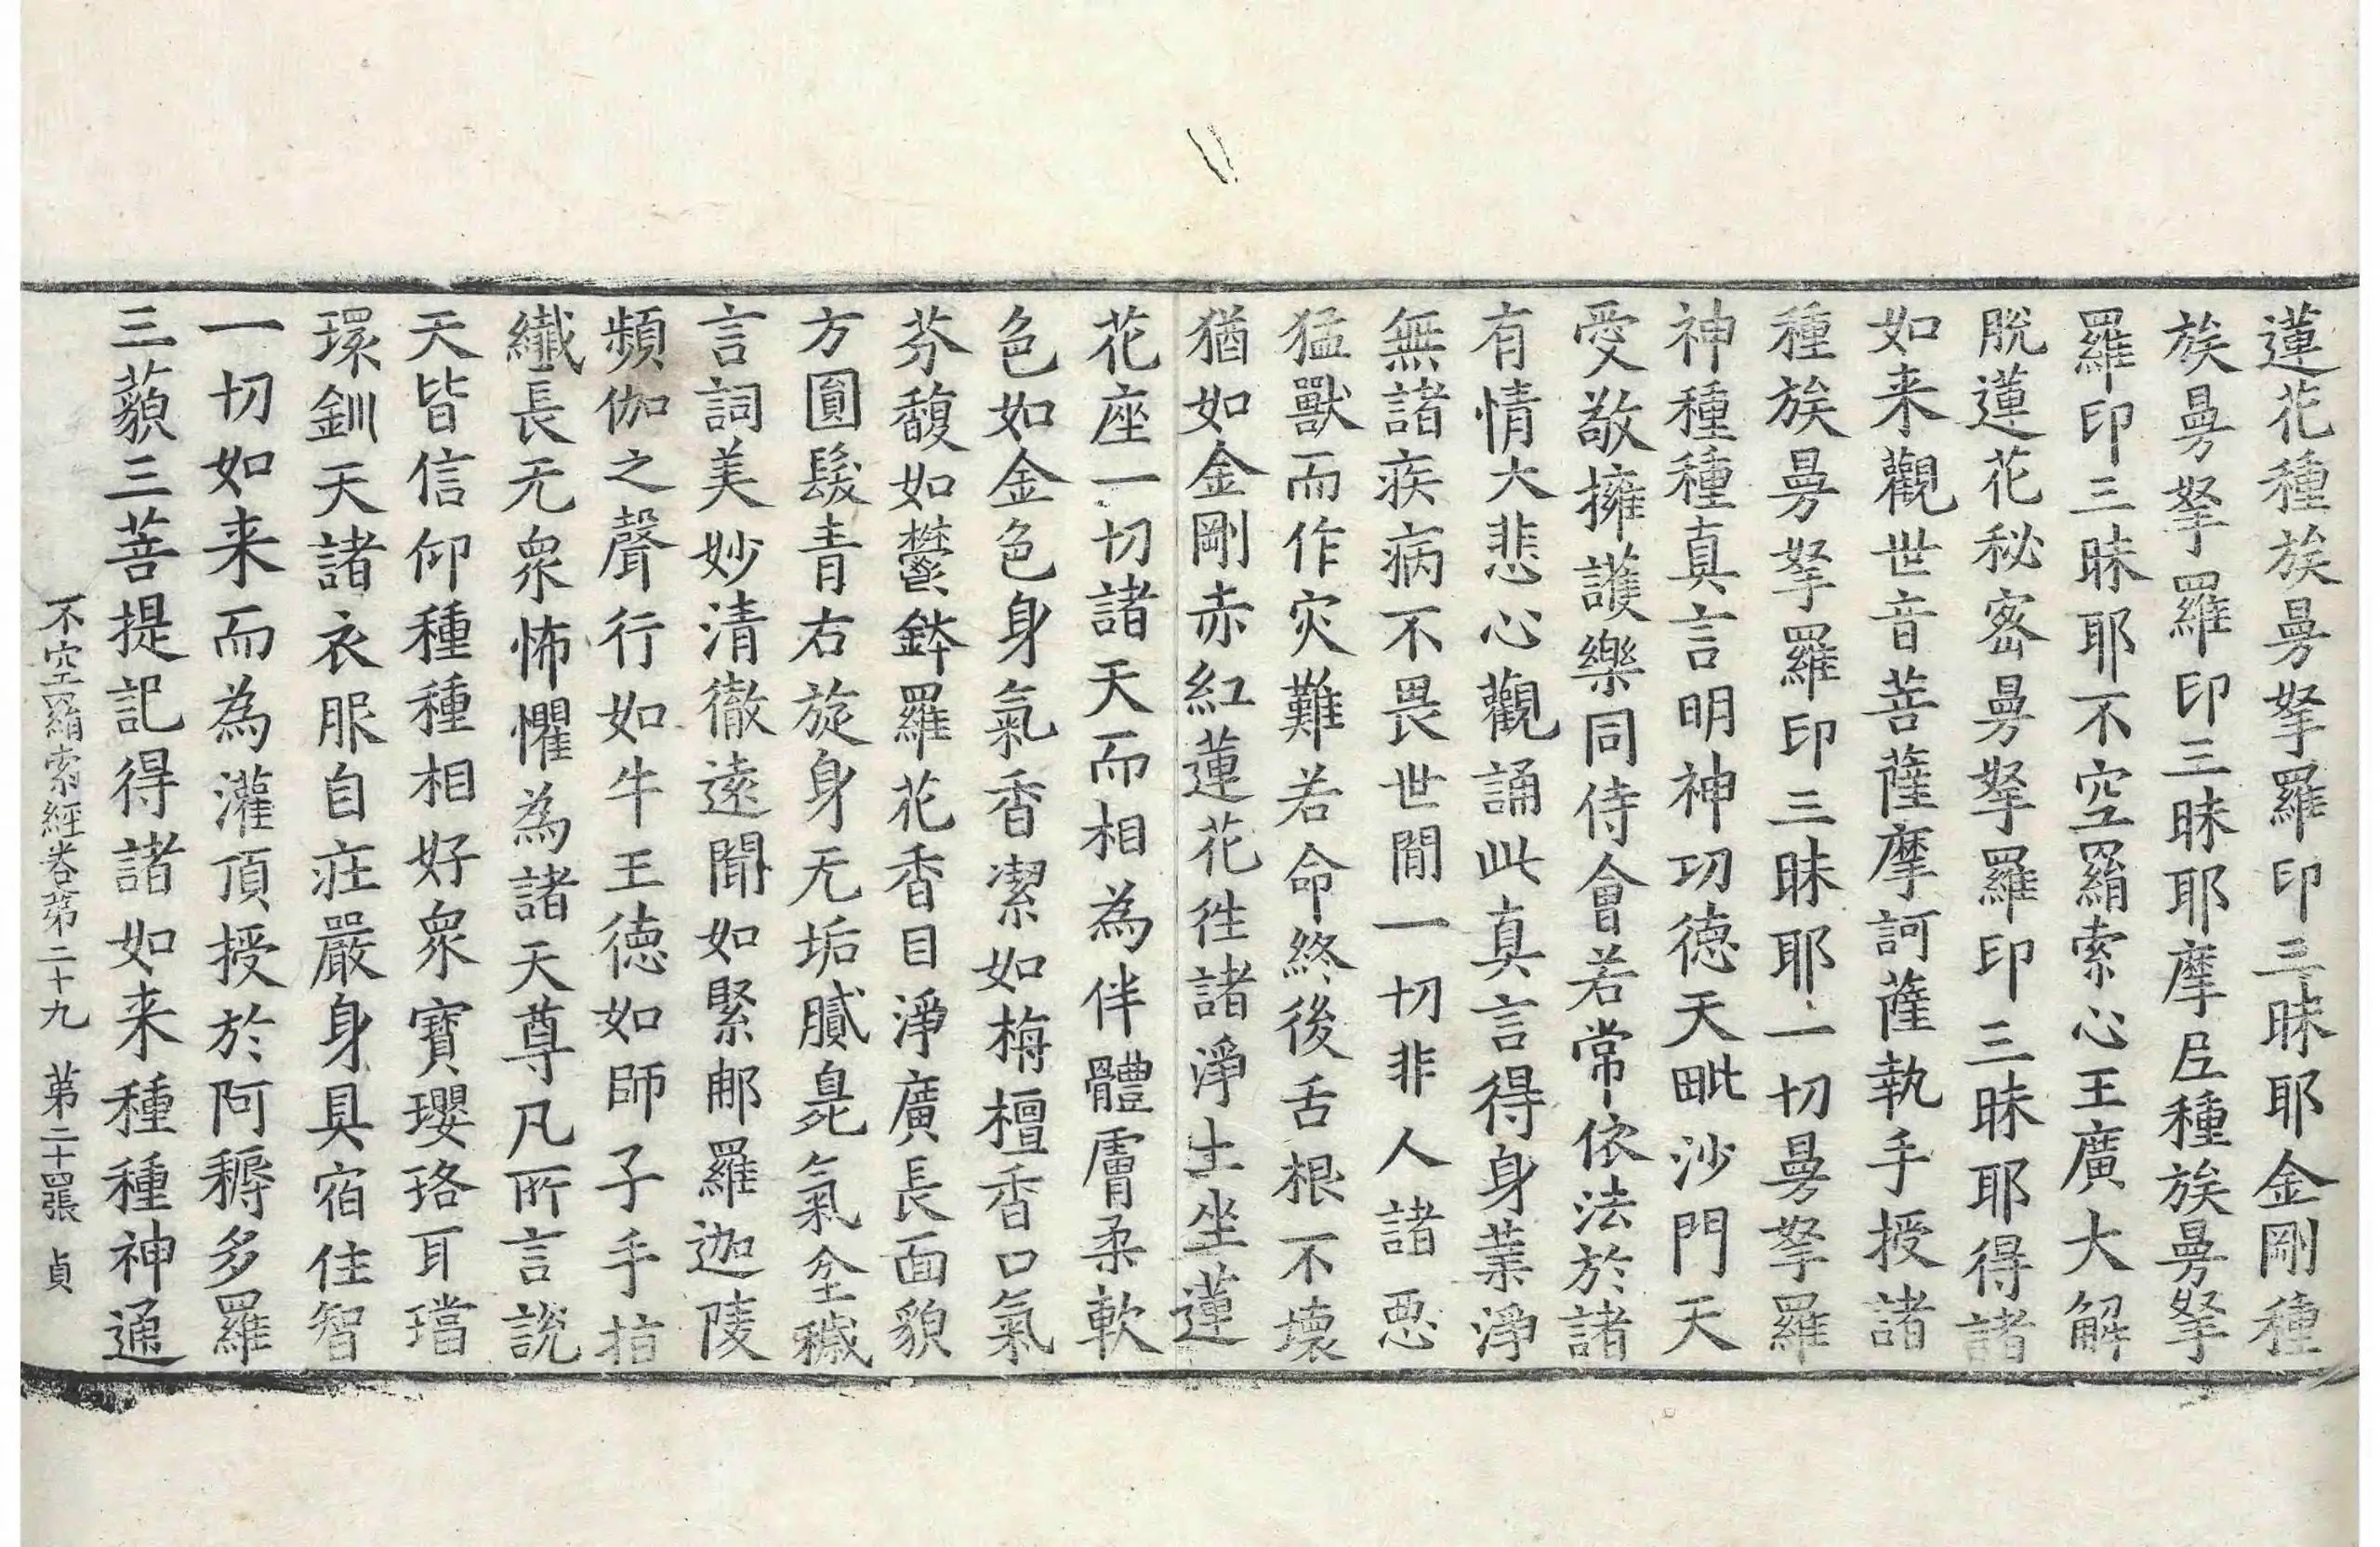 蓮花種族曼拏羅印三昧耶金剛種
族曼拏羅印三昧耶摩𡰱種族曼拏
羅印三昧耶不空羂索心王廣大解
脫蓮花秘密曼拏羅印三昧耶得諸
如来觀世音菩薩摩訶薩執手授諸
種族曼拏羅印三昧耶一切曼拏羅
神種種真言明神功德天毗沙門天
愛敬擁護樂同侍會若常依法於諸
有情大悲心觀誦此真言得身業淨
無諸疾病不畏世間一切非人諸惡
猛獸而作灾難若命終後舌根不壞
猶如金剛赤紅蓮花徃諸淨土坐蓮
花座一切諸天而相為伴體膚柔軟
色如金色身氣香潔如栴檀香口氣
芬馥如鬱鉢羅花香目淨廣長面貌
方圓髮青右旋身无垢膩臰氣坌穢
言詞美妙清徹遠聞如緊那羅迦陵
頻伽之聲行如牛王德如師子手指
纖長无衆怖懼為諸天尊凡所言說
天皆信仰種種相好衆寶瓔珞耳璫
環釧天諸衣服自莊嚴身具宿住智
一切如来而為灌頂授於阿耨多羅
三藐三菩提記得諸如来種種神通
不空羂索經卷第二十九 第二十四張 貞